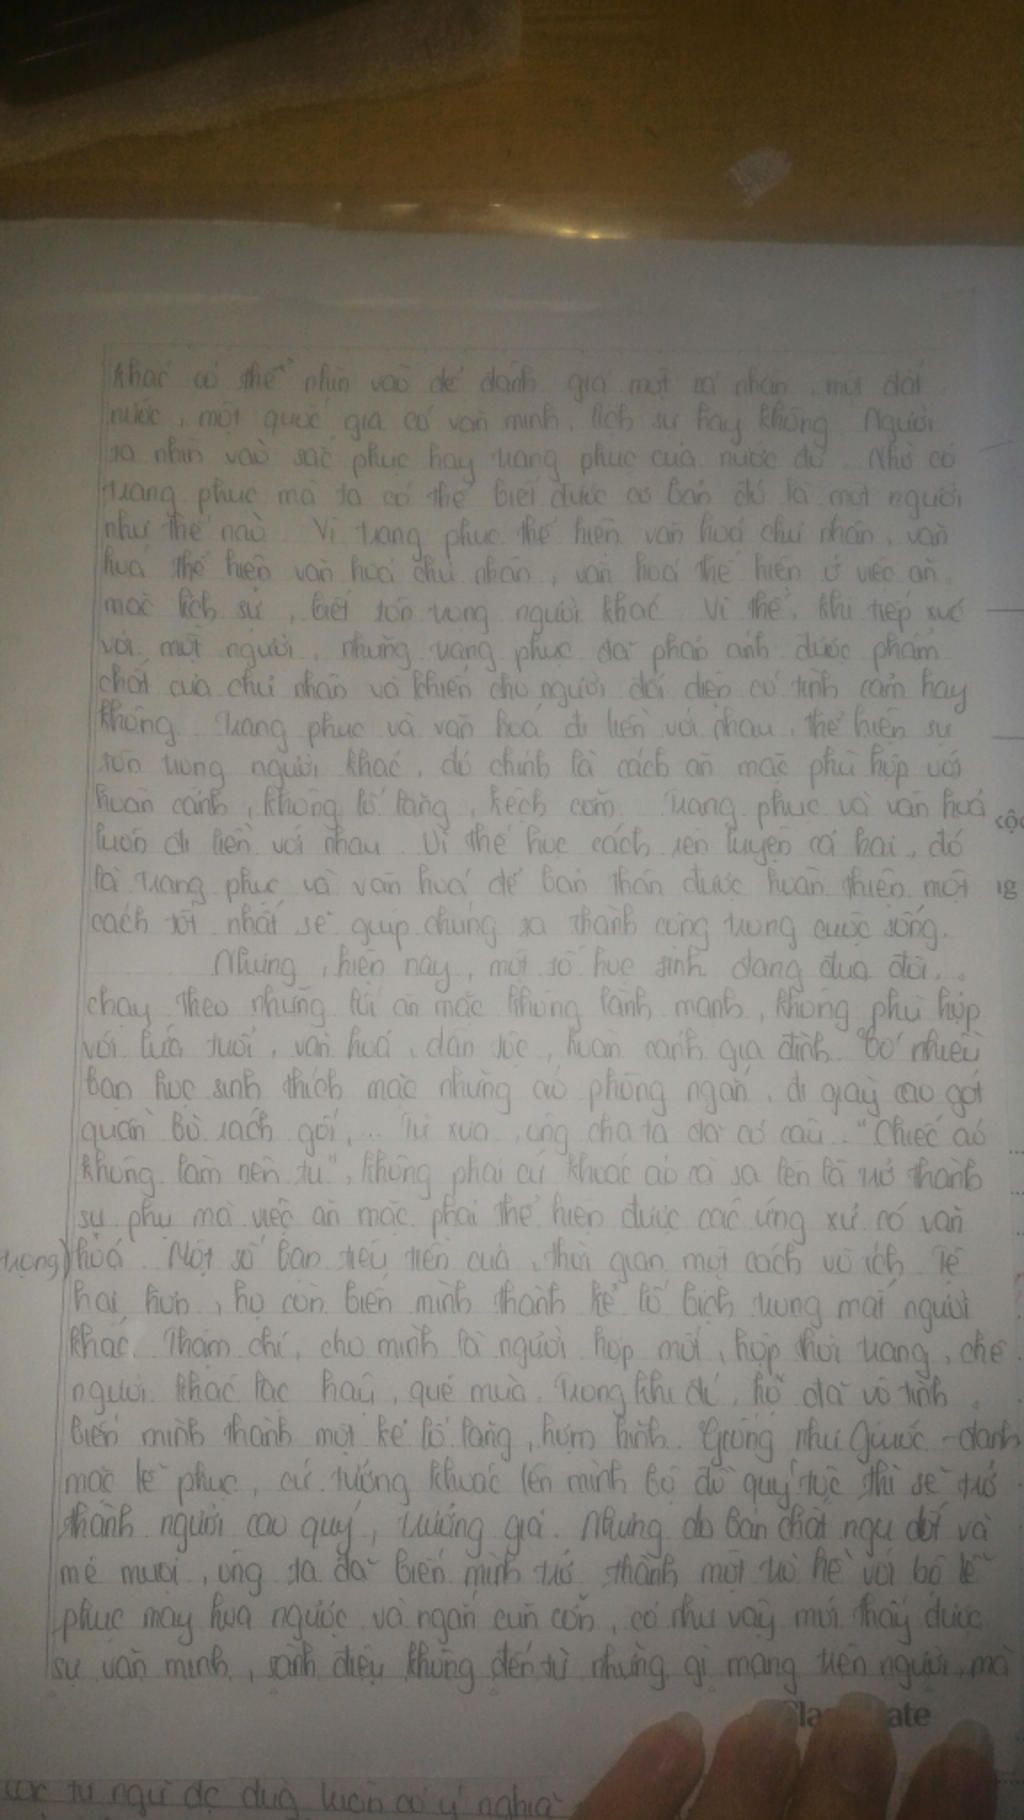 khác có thể nhìn vào để đánh giá một cá nhân, một đất
nước, một quốc gia có văn minh, lịch sự hay không. Người
ta nhìn vào sắc phục hay trang phục của nước đó. Nhờ có
trang phục mà ta có thể biết được cơ bản đó là một người
như thế nào. Vì trang phục thể hiện văn hoá chủ nhân, văn
hoá thể hiện văn hoá chủ nhân, văn hoá thể hiện ở việc ăn
mặc lịch sự, biết tôn trọng người khác. Vì thế, khi tiếp xúc
với một người, những trang phục đã phản ánh được phẩm
chất của chủ nhân và khiến cho người đối diện có tình cảm hay
không. Trang phục và văn hoá đi liền với nhau, thể hiện sự
tôn trọng người khác, đó chính là cách ăn mặc phù hợp với
hoàn cảnh, không lố lăng, kệch cỡm. Trang phục và văn hoá
luôn đi liền với nhau. Vì thế học cách rèn luyện cả hai, đó
là trang phục và văn hoá để bản thân được hoàn thiện một
cách tốt nhất sẽ giúp chúng ta thành công trong cuộc sống.
Nhưng, hiện nay, một số học sinh đang đua đòi,
chạy theo những lối ăn mặc không lành mạnh, không phù hợp
với lứa tuổi, văn hoá, dân tộc, hoàn cảnh gia đình. Có nhiều
bạn học sinh thích mặc những áo phông ngắn, đi giày cao gót
quần bò rách gối,... Từ xưa, ông cha ta đã có câu: "Chiếc áo
không làm nên tu", không phải cứ khoác áo cà sa lên là trở thành
sư phụ mà việc ăn mặc phải thể hiện được các ứng xử có văn
hoá. Một số bạn tiêu tiền của, thời gian một cách vô ích. Tệ
hại hơn, họ còn biến mình thành kẻ lố bịch trong mắt người
khác. Thậm chí, cho mình là người hợp mốt, hợp thời trang, chê
người khác lạc hậu, quê mùa. Trong khi đó, họ đã vô tình
biến mình thành một kẻ lố lăng, hợm hĩnh. Giống như Giuốc-đanh
mặc lễ phục, cứ tưởng khoác lên mình bộ đồ quý tộc thì sẽ trở
thành người cao quý, trưởng giả. Nhưng do bản chất ngu dốt và
mê muội, ông ta đã biến mình trở thành một trò hề với bộ lễ
phục may hoa ngược và ngắn cũn cỡn, có như vậy mới thấy được
sự văn minh, sành điệu không đến từ những gì mang trên người, mà